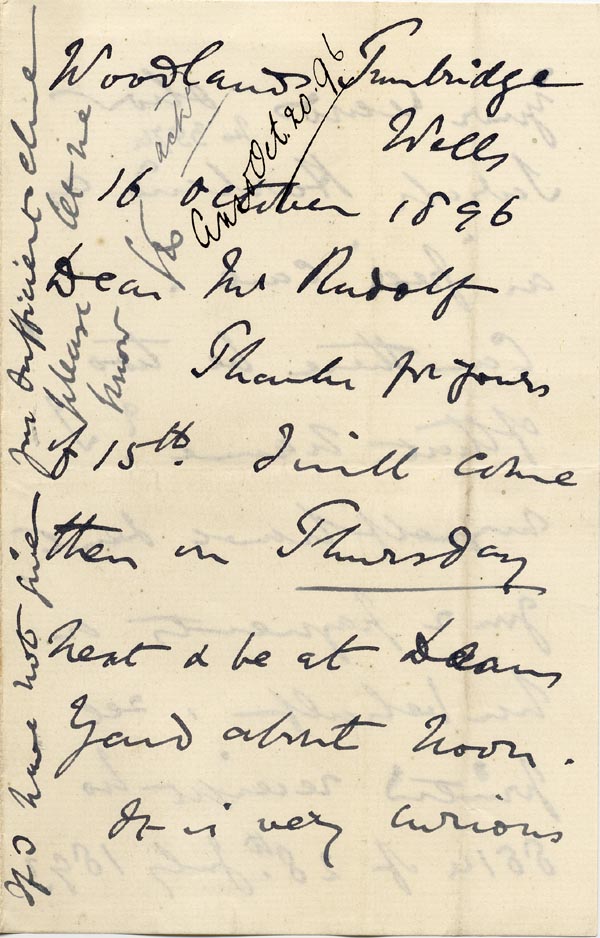 Woodlands Tunbridge
Wells
16 October 1896
ackd
Ansd Oct. 20. 96
Dear Mr Rudolf
Thanks for yours
of 15th. I will come
then on Thursday
next & be at Deans
Yard about Noon.
It is very curious
If I have not given you sufficient time
please let me
know